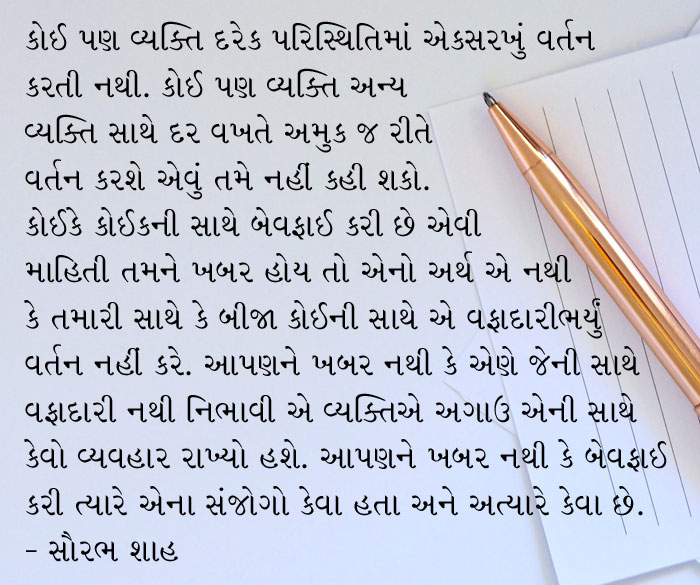 કોઈ પણ વ્યક્તિ દરેક પરિસ્થિતિમાં એકસરખું વર્તન
કરતી નથી. કોઈ પણ વ્યક્તિ અન્ય
વ્યક્તિ સાથે દર વખતે અમુક જ રીતે
વર્તન કરશે એવું તમે નહીં કહી શકો.
કોઈકે કોઈકની સાથે બેવફાઈ કરી છે એવી
માહિતી તમને ખબર હોય તો એનો અર્થ એ નથી
કે તમારી સાથે કે બીજા કોઈની સાથે એ વફાદારીભર્યું
વર્તન નહીં કરે. આપણને ખબર નથી કે એણે જેની સાથે
વફાદારી નથી નિભાવી એ વ્યક્તિએ અગાઉ એની સાથે
કેવો વ્યવહાર રાખ્યો હશે. આપણને ખબર નથી કે બેવફાઈ
કરી ત્યારે એના સંજોગો કેવા હતા અને અત્યારે કેવા છે.
- સૌરભ શાહ